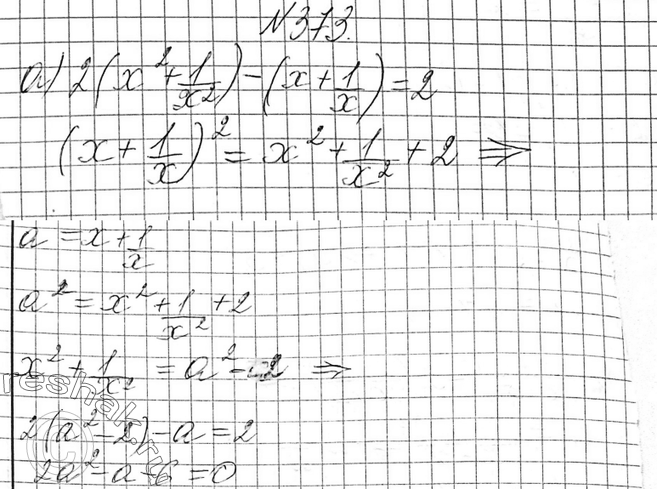 N 373.
а) 2(x²+1/x²)-(x+1/x)=2
(x+1/x)²=x²+1/x²+2 ⇒
a=x+1/x
a²=x²+1/x²+2
x²+1/x²=a²-2 ⇒
2(a²-2)-a=2
2a²-a-6=0
reshak.ru
©